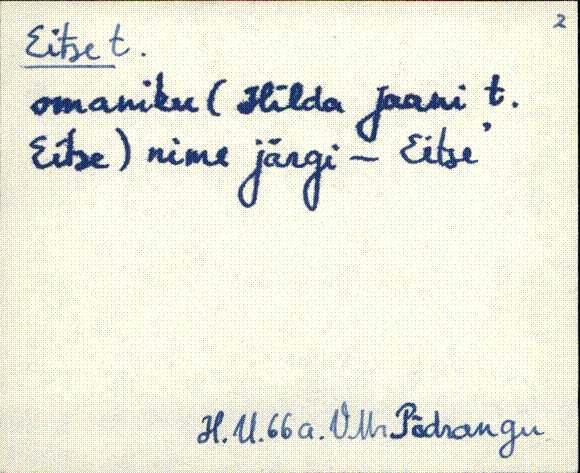 2
Eitse t.
omaniku (Hilda Jaani t.
Eitse) nime järgi – Eitse'
H. U. 66 a. VMr Põdrangu